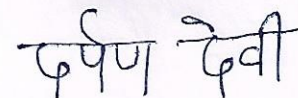 दर्पण देवी